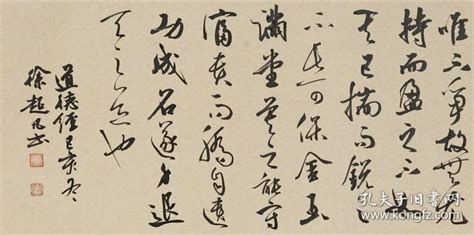 唯不争故無尤
持而盈之不如
其已揣而銳
不長可保金玉
滿堂莫之能守
富貴而驕自遺
功成名遂身退
天之道也
道德經己亥冬
徐超凡书
孔夫子旧书网